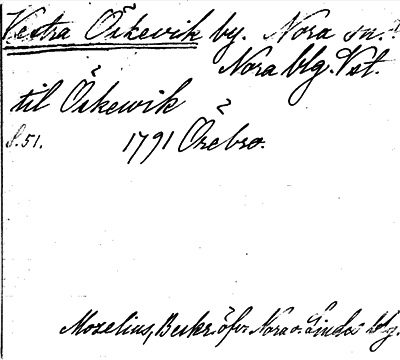 Vestra Öskevik by. Nora sn.
Nora blg. Vst.
til Öskewik
S. 51. 1791 Örebro.
Mozelius, Beskr. öfv. Nora o. Linde blg.